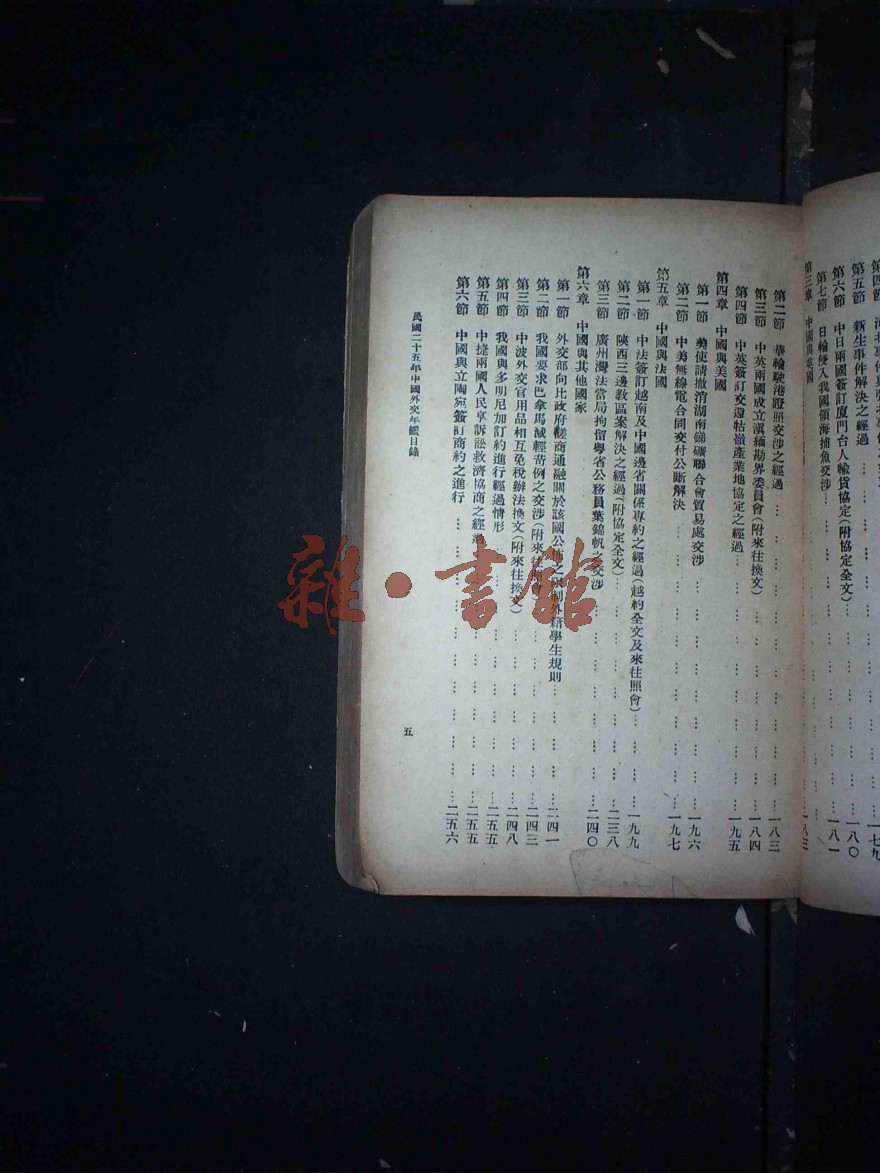 第五節 新生事件解決之經過 … 一八〇
第六節 中日兩國簽訂廈門台人輸貨協定(附協定全文) … 一八一
第七節 日輪侵入我國領海捕魚交涉
第三章 中國與英國
第二節 華輪駛港證照交涉之經過 … 一八三
第三節 中英兩國成立滇緬勘界委員會(附來往換文) … 一八四
第四節 中英簽訂交還牯嶺產業地協定之經過 … 一九五
第四章 中國與美國
第一節 美使請撤消湖南銻礦聯合會貿易處交涉 … 一九六
第二節 中美無線電合同交付公斷解決 … 一九七
第五章 中國與法國
第一節 中法簽訂越南及中國邊省關係專約之經過(越約全文及來往照會) … 一九九
第二節 陝西三邊教區案解決之經過(附協定全文) … 二三八
第三節 廣州灣法當局拘留粵省公務員葉錦帆之交涉 … 二四〇
第六章 中國與其他國家
第一節 外交部向比政府磋商通融關於該國公佈之限制外籍學生規則 … 二四一
第二節 我國要求巴拿馬減輕苛例之交涉(附來往照會) … 二四三
第三節 中波外交官用品相互免稅辦法換文(附來往換文) … 二四八
第四節 我國與多明尼加訂約進行經過情形 … 二五五
第五節 中捷兩國人民享訴訟救濟協商之經過 … 二五五
第六節 中國與立陶宛簽訂商約之進行 … 二五六
民國二十五年中國外交年鑑目錄
五
雜·書館